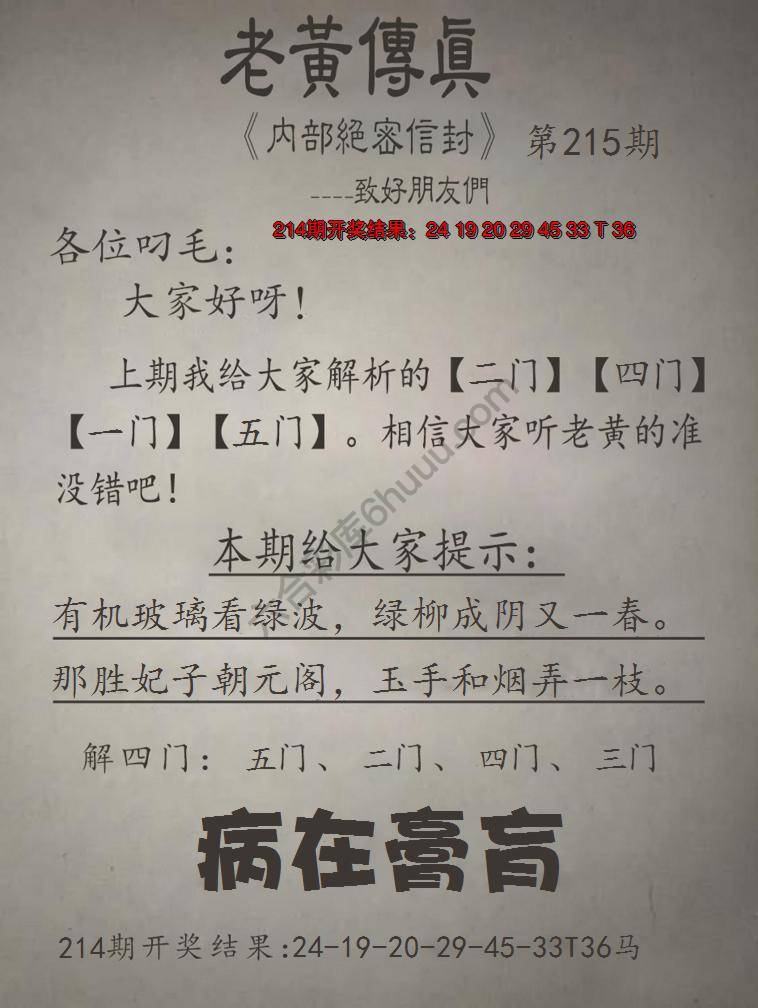 老黃傳真
《内部絕密信封》 第215期
----致好朋友們
214期开奖结果：24 19 20 29 45 33 T 36
各位叼毛：
大家好呀！
上期我给大家解析的【二门】【四门】
【一门】【五门】。相信大家听老黄的准
没错吧！
本期给大家提示：
有机玻璃看绿波，绿柳成阴又一春。
那胜妃子朝元阁，玉手和烟弄一枝。
解四门： 五门、 二门、 四门、 三门
病在膏肓
214期开奖结果:24-19-20-29-45-33T36马
六合彩库6huuu.com